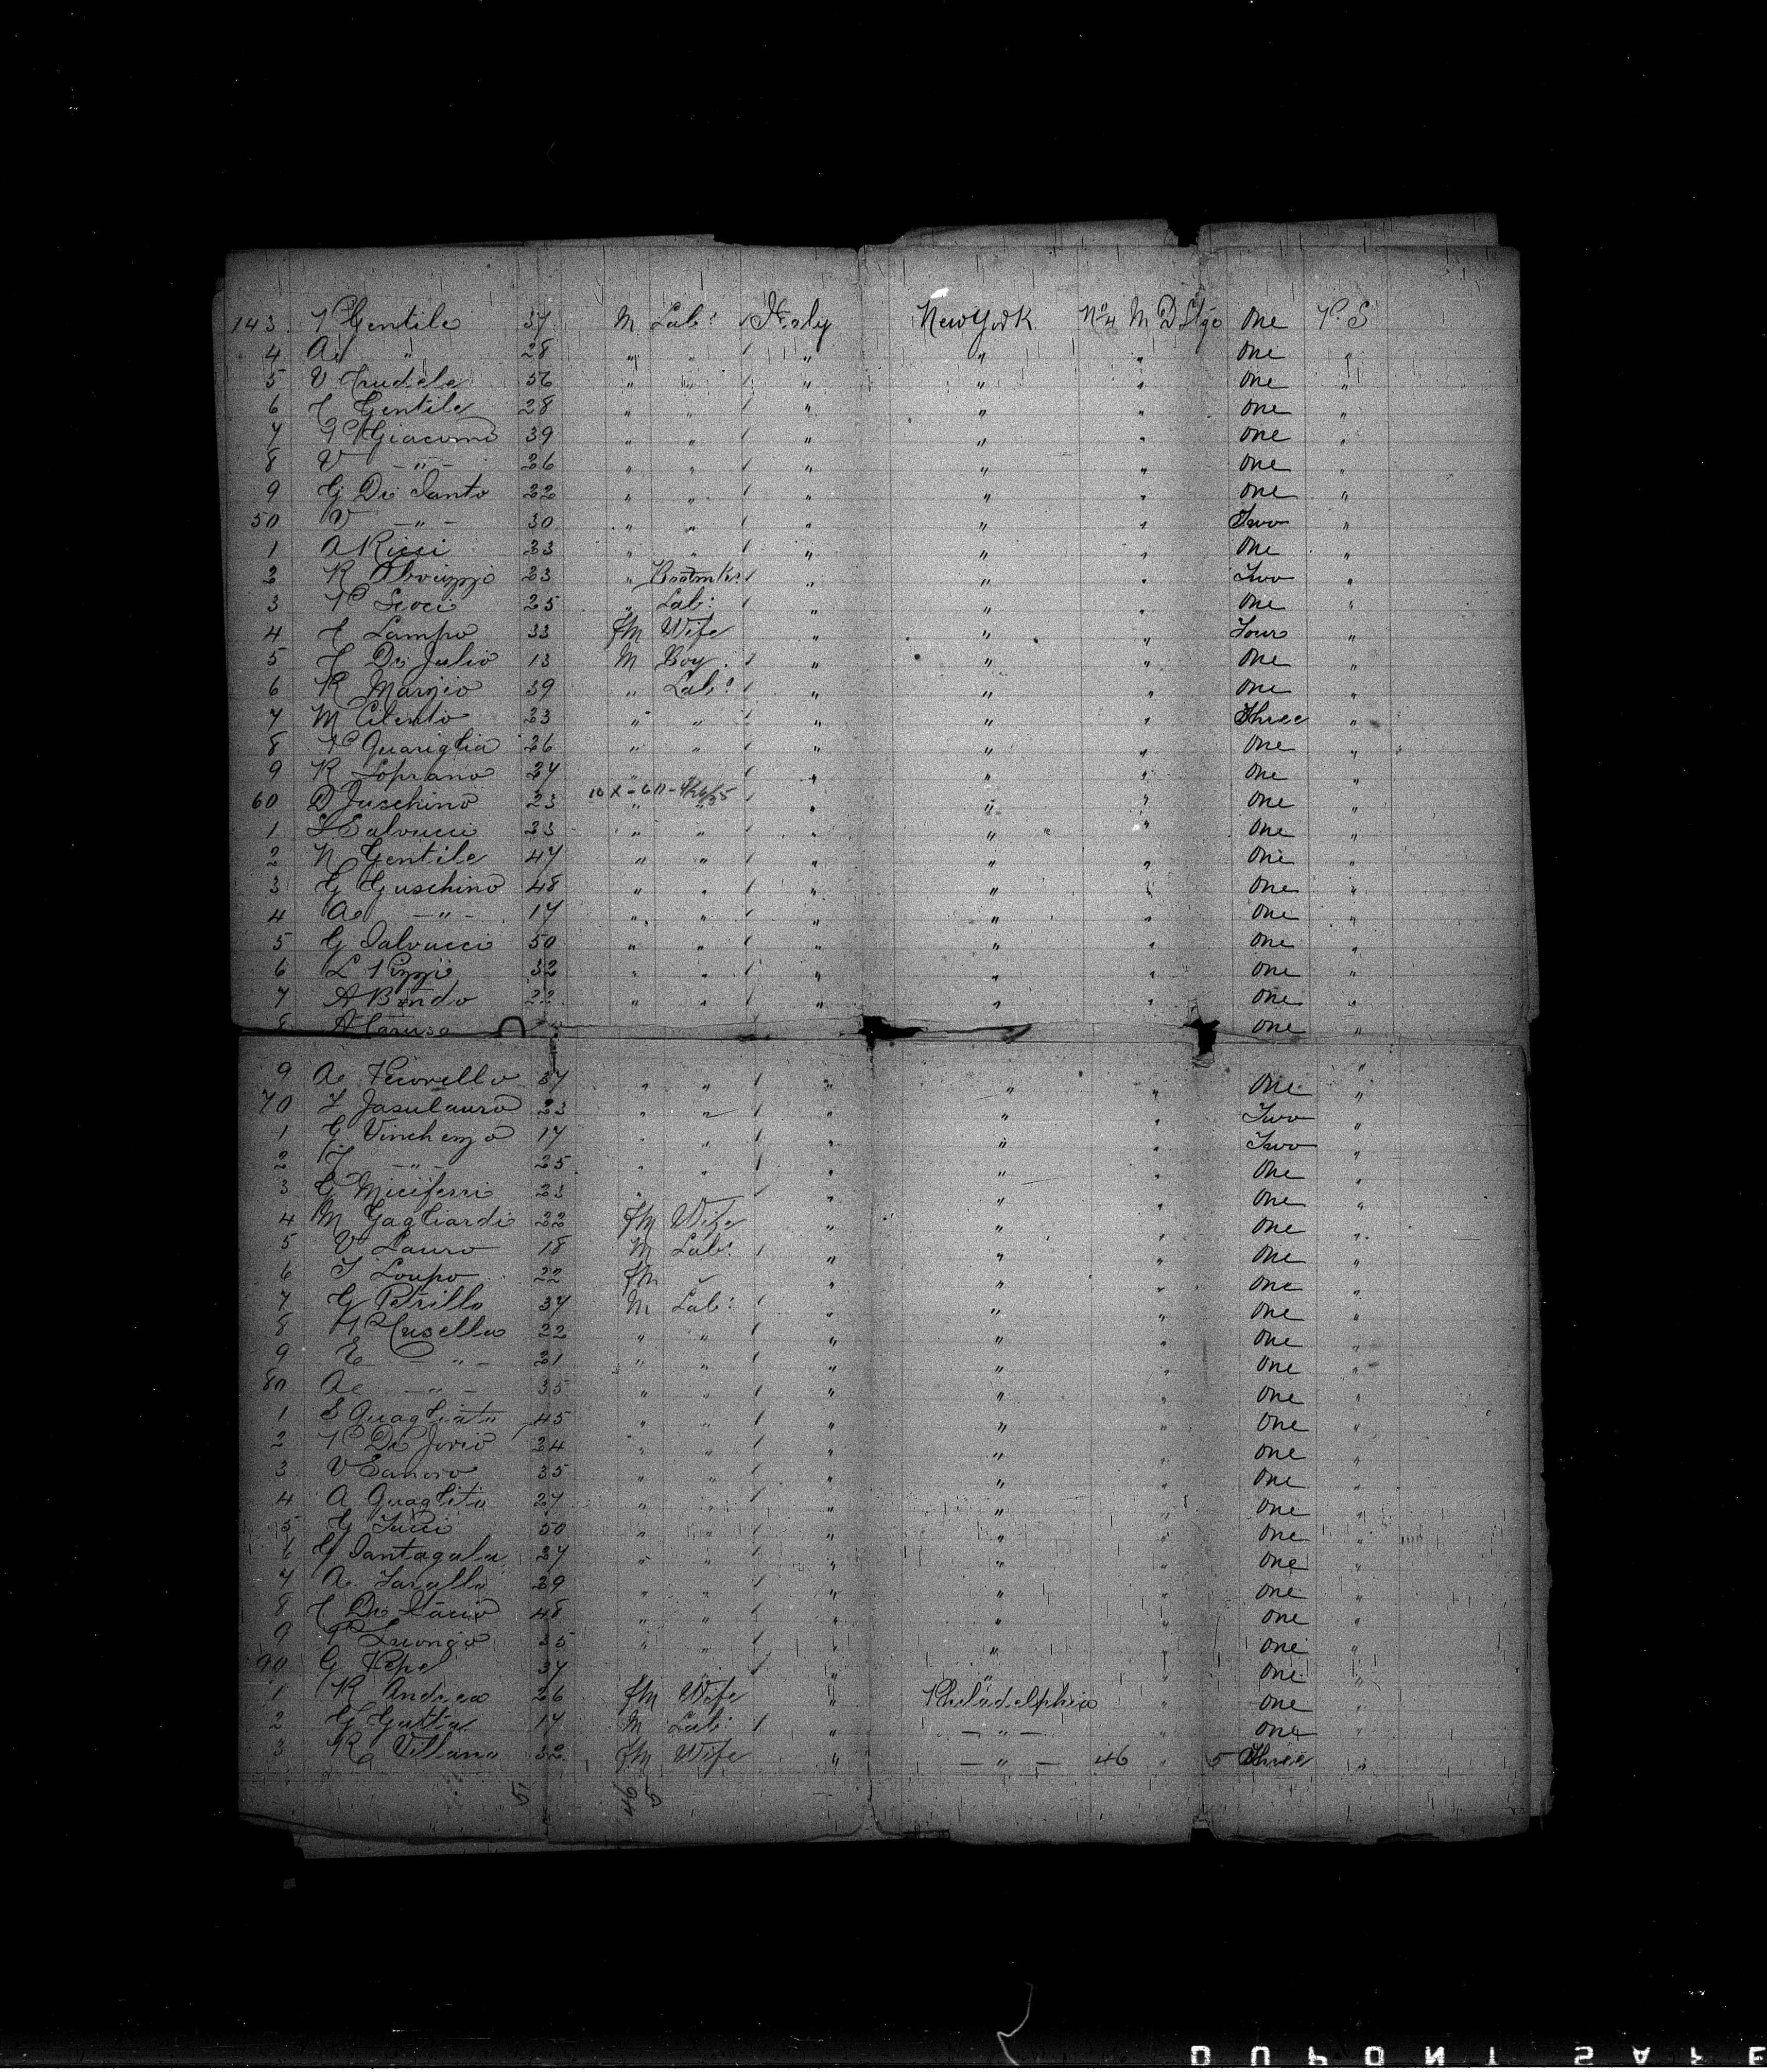 143 P Gentile 37 M Lab: / Italy New York No 4 M D Stge One P. S
4 A. " 28 " " / " " " One "
5 V Crudele 56 " " / " " " One "
6 C Gentile 28 " " / " " " One "
7 P Giacomo 39 " " / " " " One "
8 V - " - 26 " " / " " " One "
9 G Di Santo 22 " " / " " " One "
50 V - " - 30 " " / " " " Two "
1 A Ricci 23 " " / " " " One "
2 R 23 " Bootmkr / " " " Two "
3 P 25 " Lab: / " " " One "
4 C Lampo 33 fm Wife " " " Four "
5 C Di Julio 13 M Boy / " " " One "
6 R Marzio 39 " Lab: / " " " One "
7 M Cilento 23 " " / " " " Three "
8 P Quariglia 26 " " / " " " One "
9 R Soprano 27 " " / " " " One "
10 X - 611 - 4/26/35
60 D Juschino 23 " " / " " " One "
1 S Salvucci 23 " " / " " " One "
2 N Gentile 47 " " / " " " One "
3 G Guschino 48 " " / " " " One "
4 A. - " - 17 " " / " " " One "
5 G Salvucci 50 " " / " " " One "
6 L Pizzi 32 " " / " " " One "
7 A Bindo 22 " " / " " " One "
8 A Caruso One "
9 A. Pecorello 37 " " / " " " One "
70 23 " " / " " " Two "
1 G Vinchenzo 17 " " / " " " Two "
2 - " - 25 " " / " " " One "
3 G Miciferri 23 " " / " " " One "
4 M Gagliardi 22 fm Wife " " " One "
5 V Lauro 18 M Lab: / " " " One "
6 Loupo 22 fm " " " One "
7 G Petrillo 37 M Lab: / " " " One "
8 P Cusella 22 " " / " " " One "
9 E - " - 21 " " / " " " One "
80 A. - " - 35 " " / " " " One "
1 S Quagliata 45 " " / " " " One "
2 P Di Jorio 24 " " / " " " One "
3 V 35 " " / " " " One "
4 A Quaglita 27 " " / " " " One "
5 G 50 " " / " " " One "
6 G Santagala 27 " " / " " " One "
7 A. 29 " " / " " " One "
8 C Di 48 " " / " " " One "
9 P Luongo 35 " " / " " " One "
90 G Pepe 37 " " / " " " One "
1 R Andrea 26 fm Wife " Philadelphia " One "
2 G Gatta 17 M Lab: / " - " - " One "
3 R Villano 32 fm Wife " - " - 46 5 Three "
5 46 5
DUPONT SAFE